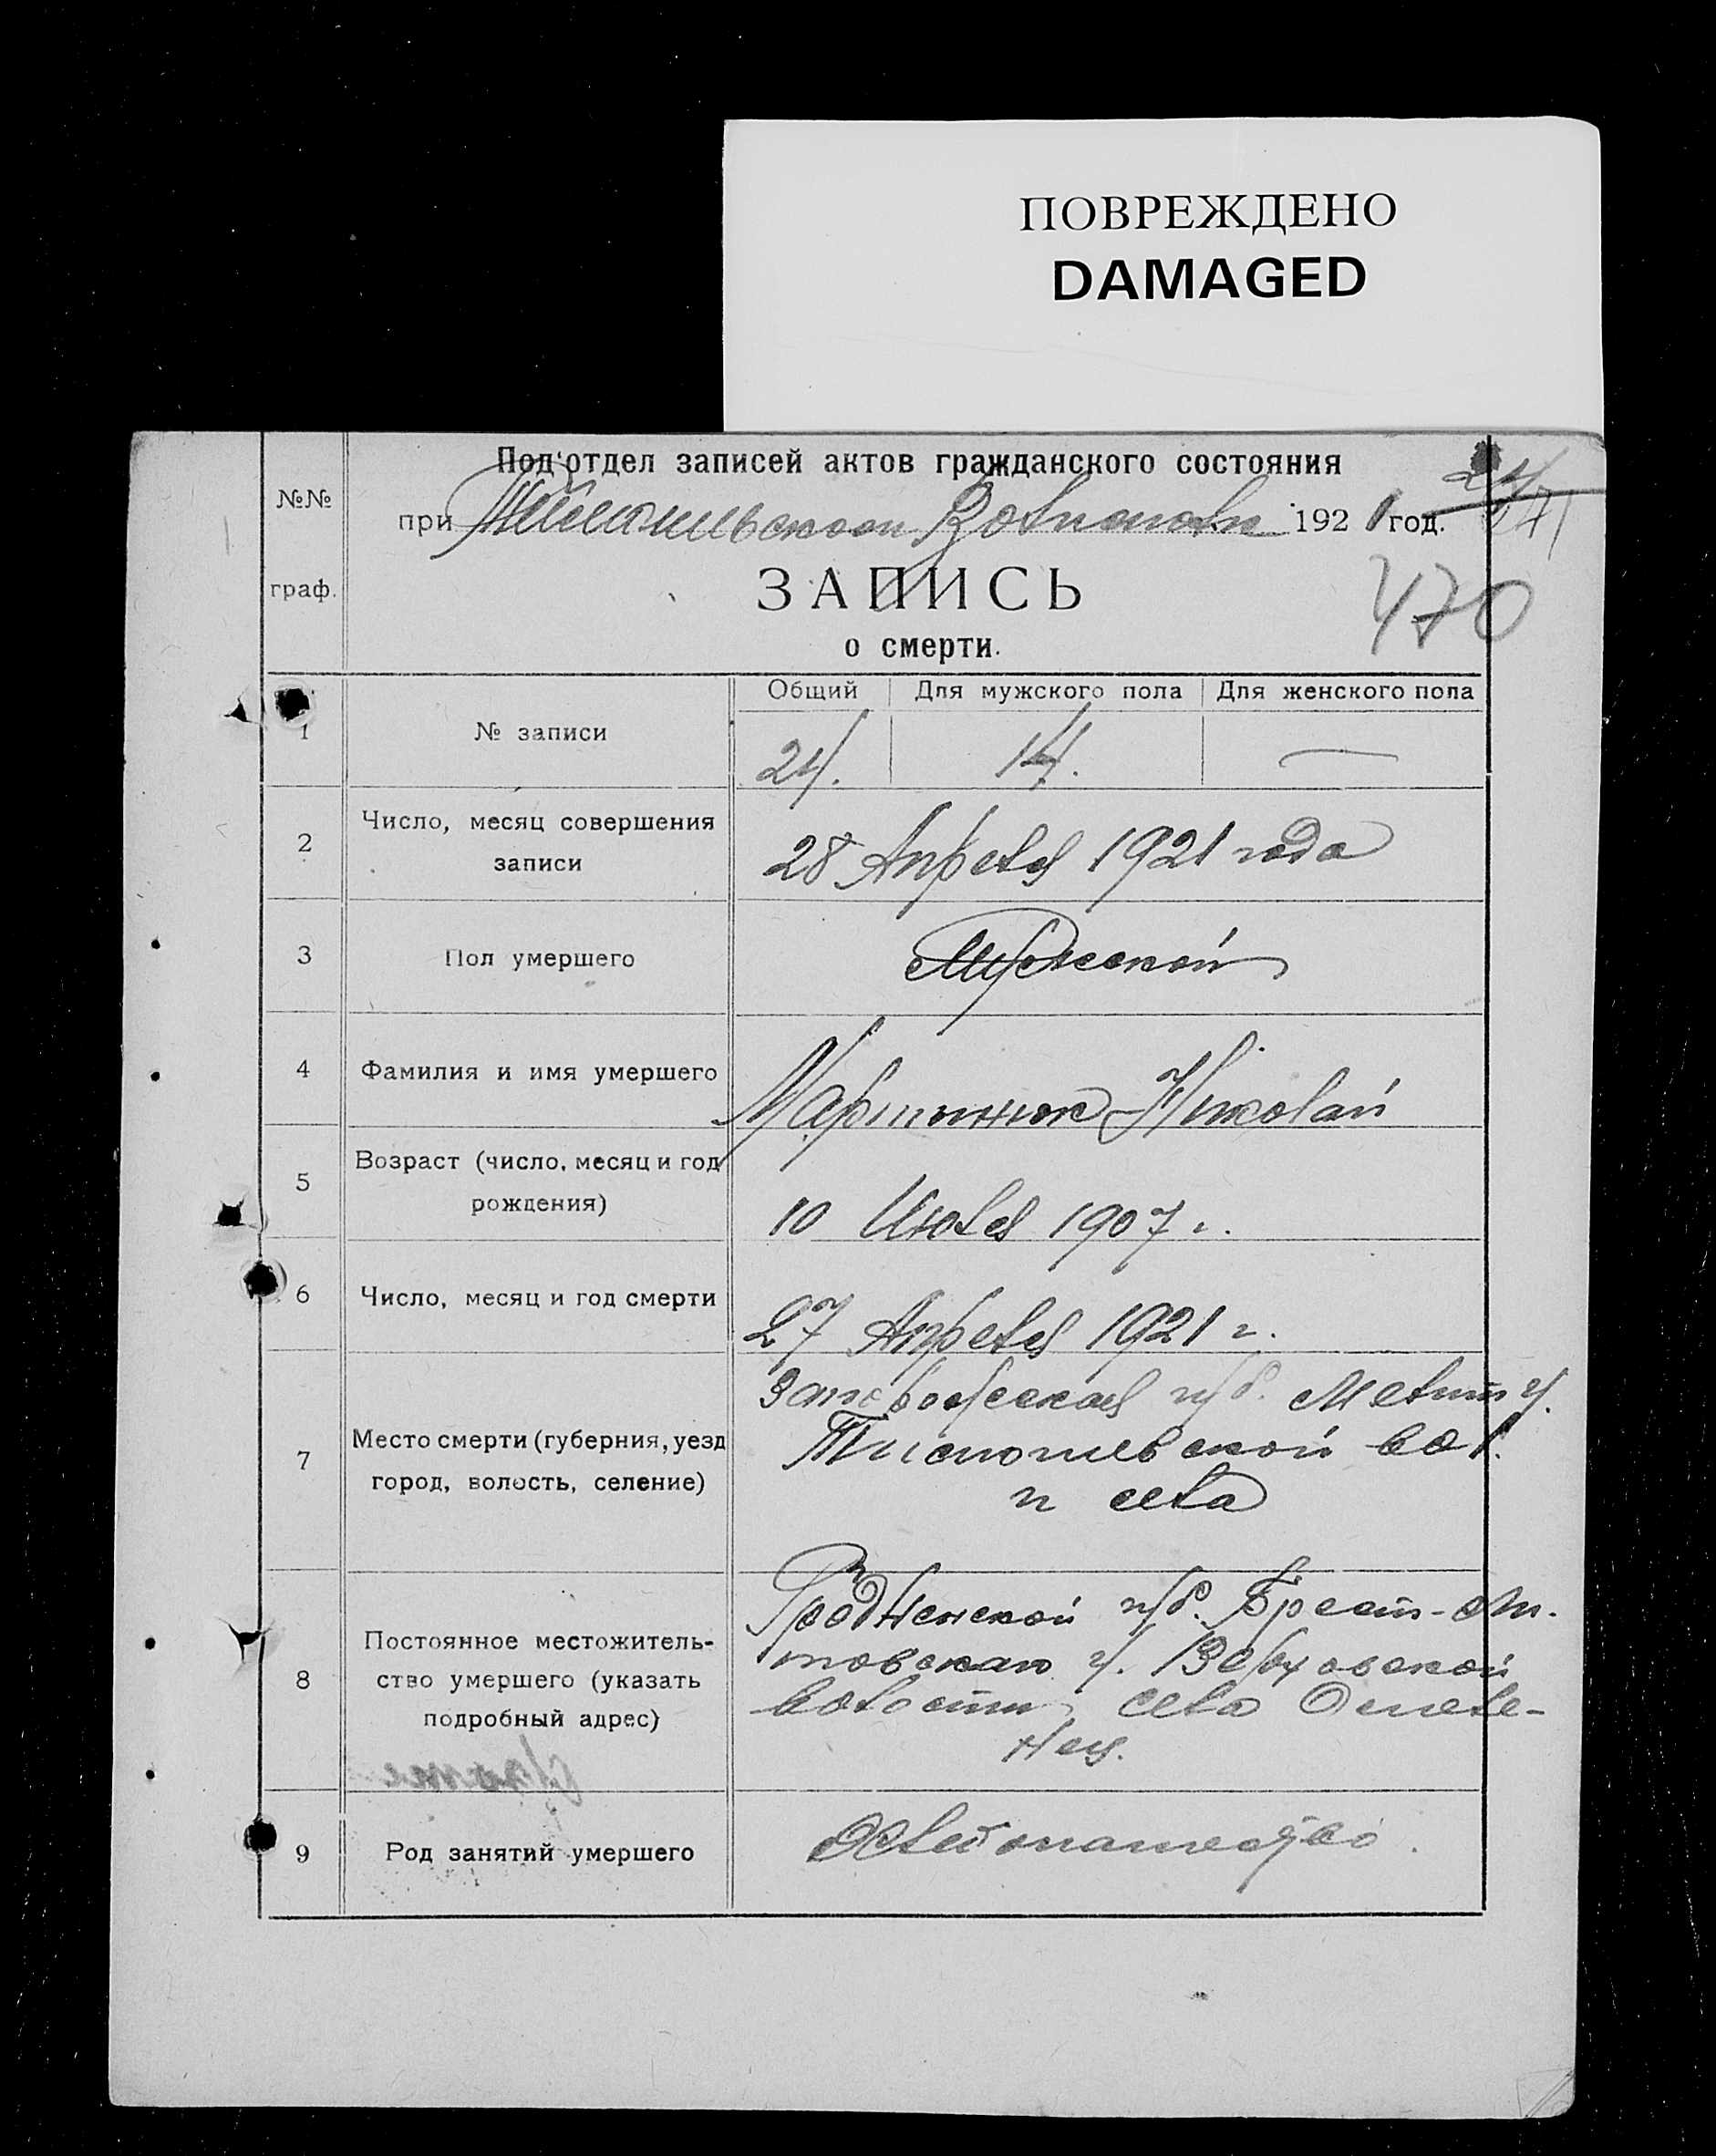 ПОВРЕЖДЕНО
DAMAGED
Под'отдел записей актов гражданского состояния
№№
при 1921 год.
470
граф.
ЗАПИСЬ
о смерти.
Общий Для мужского пола Для женского пола
1 № записи 24. 14. —
2 Число, месяц совершения
записи
28 Апреля 1921 года
3 Пол умершего Мужской
4 Фамилия и имя умершего Мартынюк Николай
5 Возраст (число, месяц и год
рождения)
10 Июля 1907 г.
6 Число, месяц и год смерти 27 Апреля 1921 г.
7 Место смерти (губерния, уезд
город, волость, селение)
Запорожская губ. Мелит у.
вол.
и села
8 Постоянное местожитель-
ство умершего (указать
подробный адрес)
Гродненской губ. Брест-Ли-
товскаго у. Верховской
волости села
9 Род занятий умершего Хлебопашество.